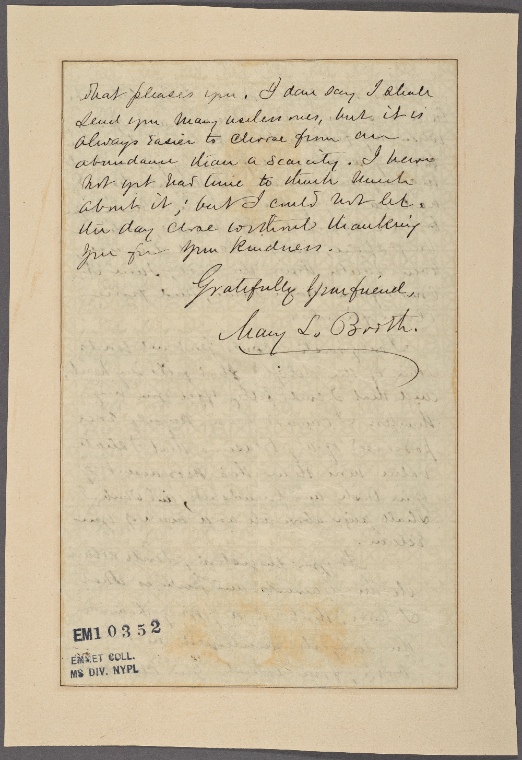 that pleases you. I dare say I shall
send you many useless ones, but it is
always easier to choose from an
abundance than a scarcity. I have
not yet had time to think much
about it; but I could not let
the day close without thanking
you for your kindness.
Gratefully your friend,
Mary L. Booth.
EM10352
EMMET COLL.
MS DIV. NYPL